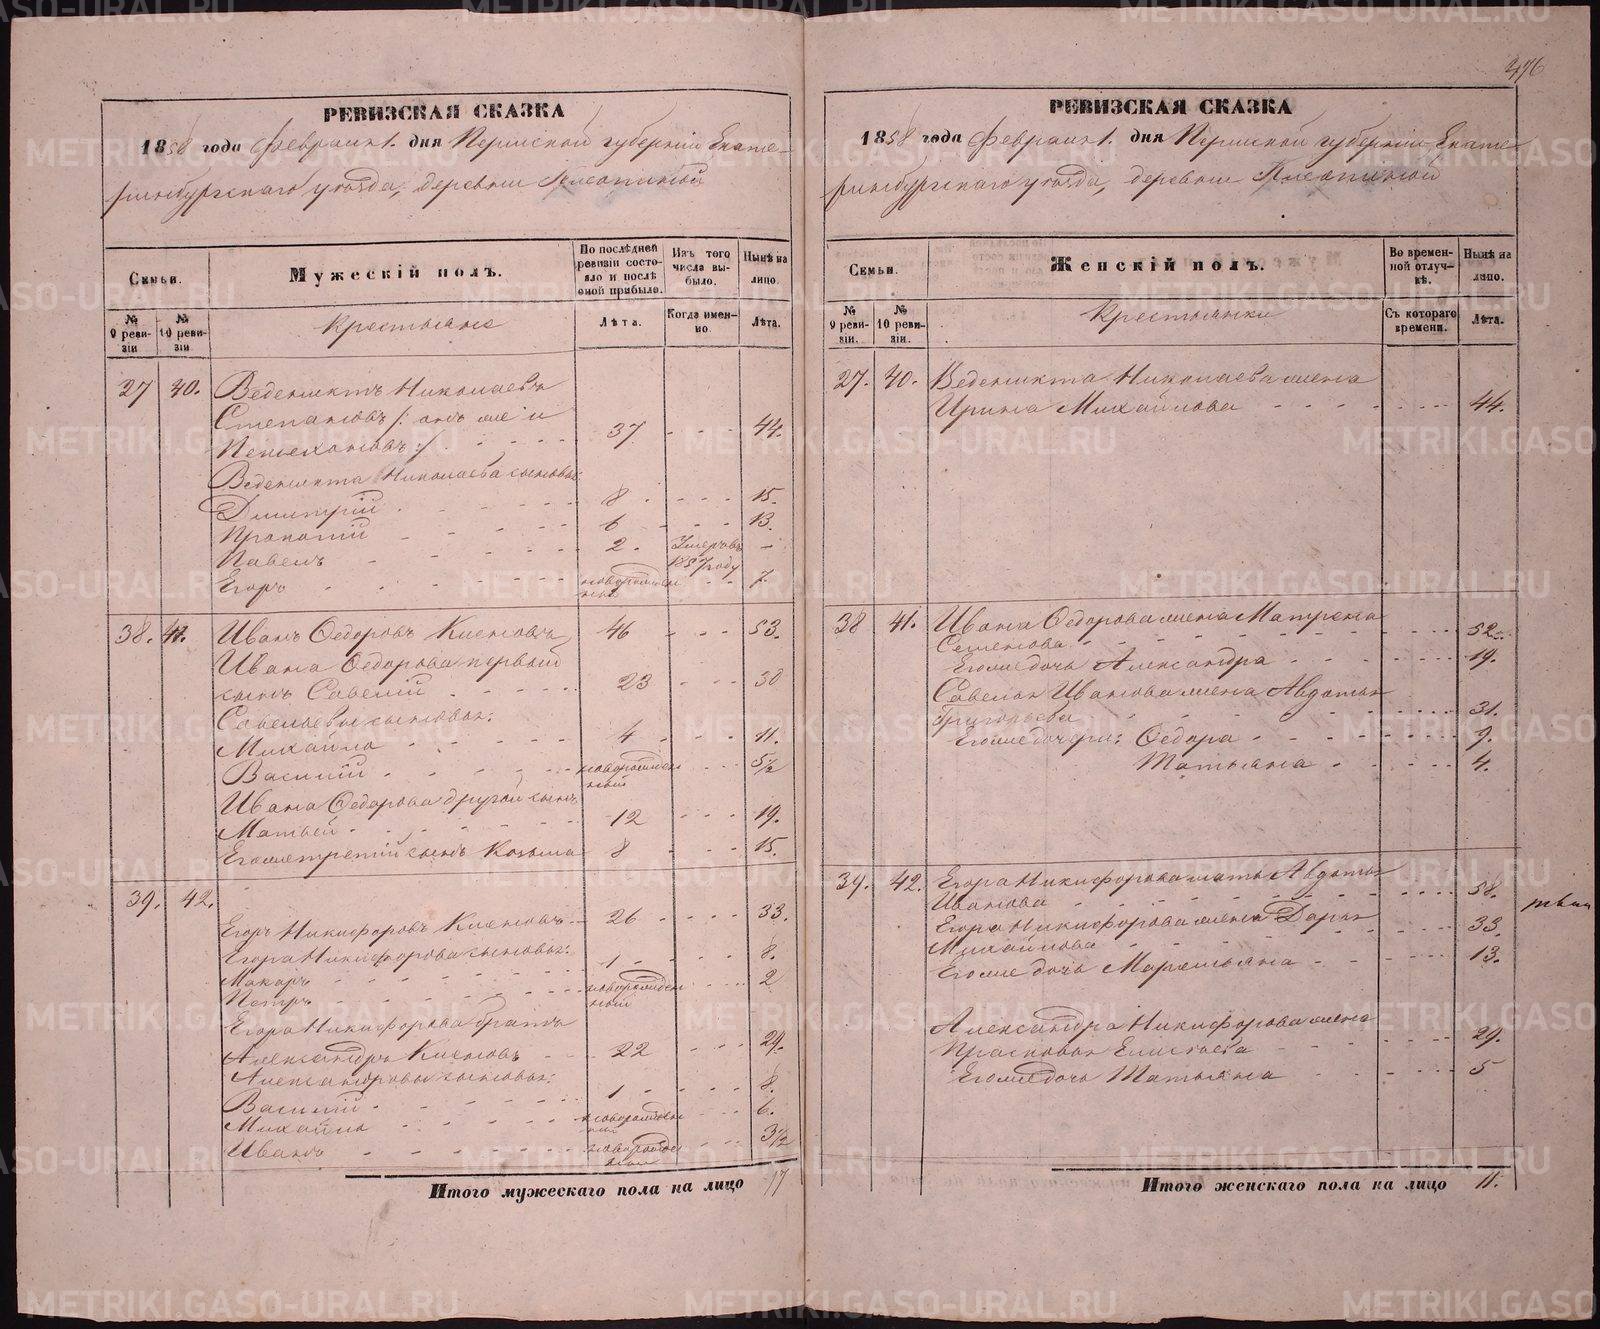 476
РЕВИЗСКАЯ СКАЗКА
1858 года Февраля 1. дня Пермской губерніи Екате-
ринбургскаго уѣзда, деревни
Семьи.
№ 9 ревизіи
№ 10 ревизіи
Мужескій полъ.
Крестьяне
По послѣдней ревизіи состояло и послѣ оной прибыло.
Лѣта.
Изъ того числа выбыло.
Когда именно.
Нынѣ на лицо.
Лѣта.
27 40. Веденихтъ Николаевъ
Степановъ /: онъ же и
:/ 37 44.
Веденихта Николаева сыновья
Дмитрій 8 15.
Прокопій 6 13.
Павелъ 2. Умеръ въ 1857 году -
Егоръ новорожденный 7.
38. 41. Иванъ Ѳедоровъ Кленовъ 46 53.
Ивана Ѳедорова первый
сынъ Савелій 23 30
Савельевы сыновья:
Михайло 4 11.
Василій новорожденный 5½
Ивана Ѳедорова другой сынъ
Матвей 12 19.
Егоже третій сынъ Козьма 8 15.
39. 42.
Егоръ Никифоровъ Кленовъ 26 33.
Егора Никифорова сыновья:
Макаръ 1 8.
Петръ новорожденный 2
Егора Никифорова братъ
Александръ Кленовъ 22 29.
Александровы сыновья:
Василій 1 8.
Михайло новорожденный 6.
Иванъ новорожденный 3½
Итого мужескаго пола на лицо 17
РЕВИЗСКАЯ СКАЗКА
1858 года Февраля 1. дня Пермской губерніи Екате-
ринбургскаго уѣзда, деревни
Семьи.
№ 9 ревизіи.
№ 10 ревизіи.
Женскій полъ.
Крестьянки
Во временной отлучкѣ.
Съ котораго времени.
Нынѣ на лицо.
Лѣта.
27. 40. Веденихта Николаева жена
Ирина Михайлова 44.
38 41. Ивана Ѳедорова жена Матрена
Семенова 52.
Егоже дочь Александра 19.
Савелья Иванова жена Авдотья
Григорьева 31.
Егоже дочери: Ѳедора 9.
Татьяна 4.
39. 42. Егора Никифорова мать Авдотья
Иванова 58.
Егора Никифорова жена Дарья
Михайлова 33.
Егоже дочь Маремьяна 13.
Александра Никифорова жена
Прасковья Елисѣева 29.
Егоже дочь Татьяна 5
Итого женскаго пола на лицо 11.
METRIKI.GASO-URAL.RU